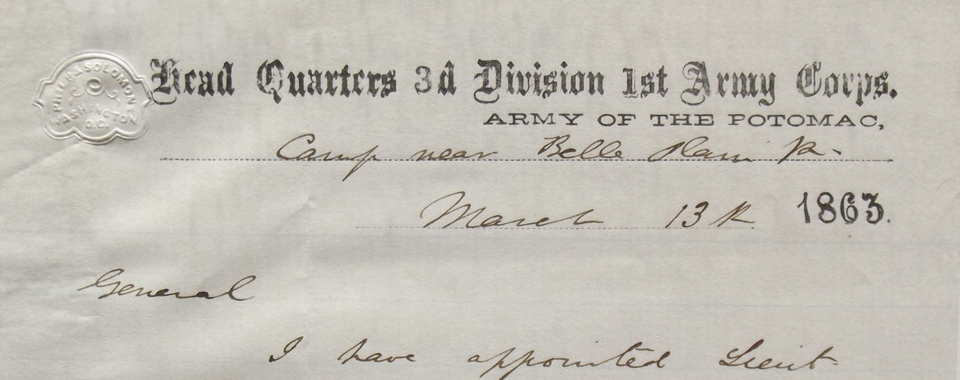 PHILP & SOLOMON
WASHINGTON
D.C.
Head Quarters 3d Division 1st Army Corps.
ARMY OF THE POTOMAC,
Camp near Belle Plain
March 13th 1863.
General
I have appointed Lieut